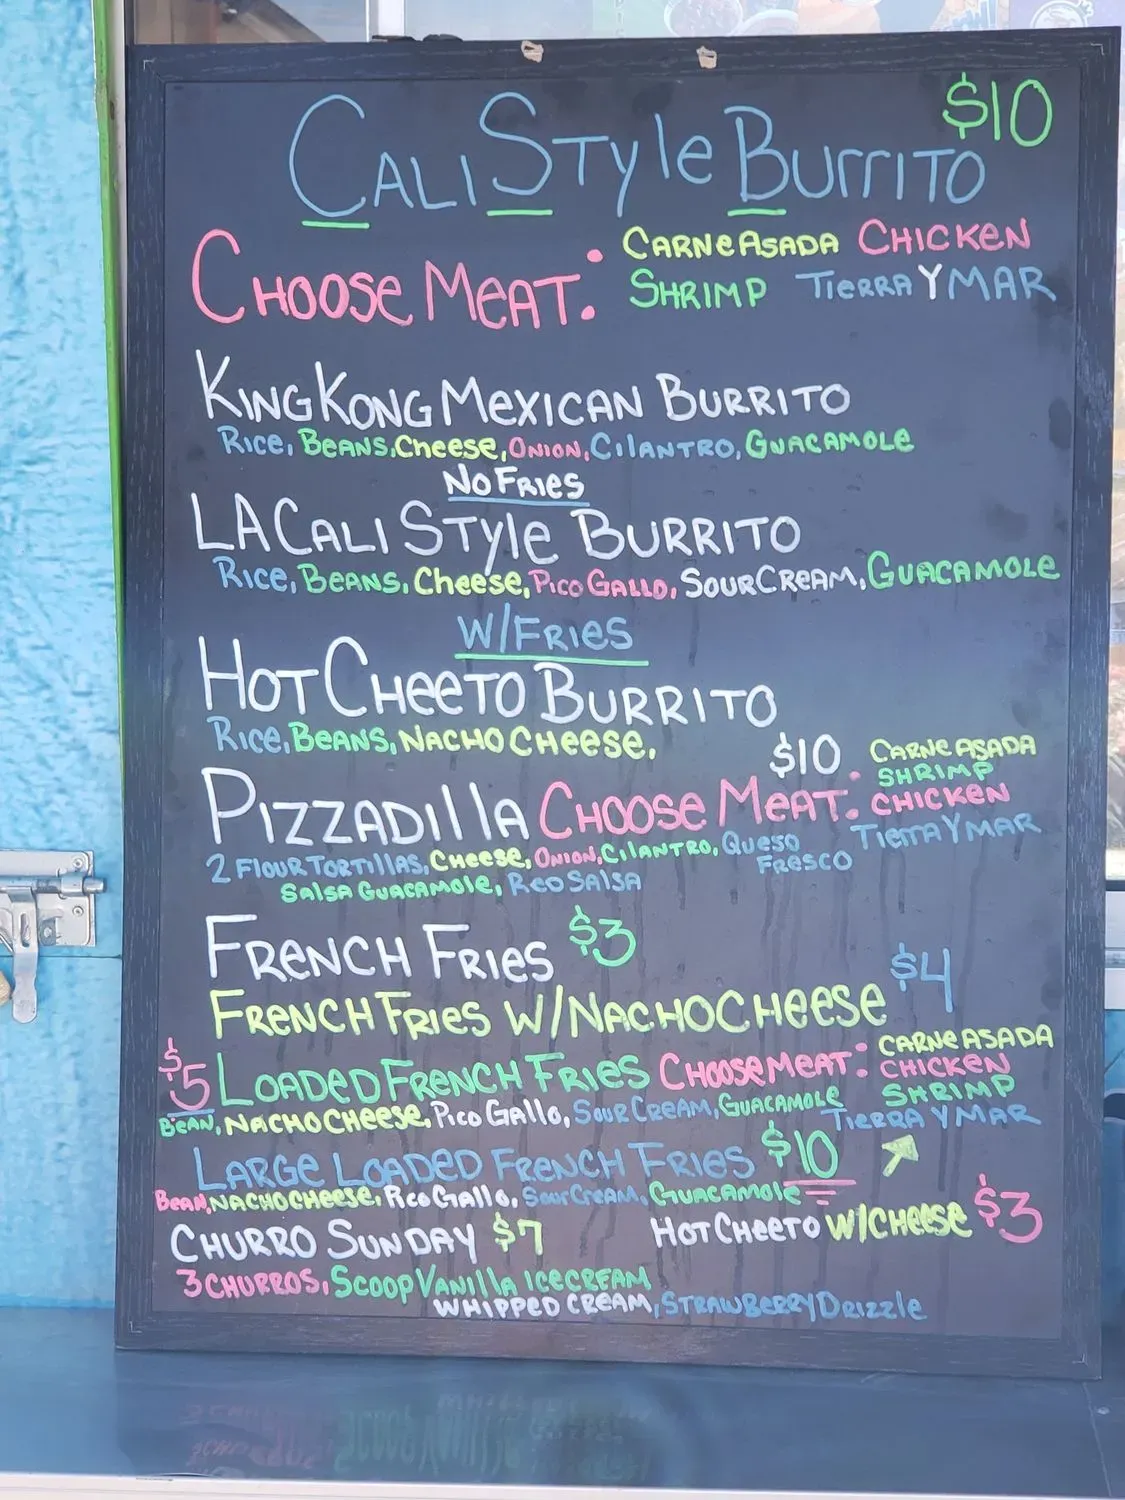 $10
CALI STyle BURRITO
CHOOSE MEAT: CARNE ASADA CHICKEN
SHRIMP TIERRA Y MAR
KING KONG MEXICAN BURRITO
RICE, BEANS, CHEESE, ONION, CILANTRO, GUACAMOLE
NO FRIES
LA CALI STyle BURRITO
RICE, BEANS, CHEESE, PICO GALLO, SOUR CREAM, GUACAMOLE
W/FRIES
HOT CHEETO BURRITO
RICE, BEANS, NACHO CHEESE,
$10 CARNE ASADA
SHRIMP
PIZZADILLA CHOOSE MEAT: CHICKEN
TIERRA Y MAR
2 FLOUR TORTILLAS, CHEESE, ONION, CILANTRO, QUESO
FRESCO
SALSA GUACAMOLE, RED SALSA
FRENCH FRIES $3
FRENCH FRIES W/NACHO CHEESE $4
$5 LOADED FRENCH FRIES CHOOSE MEAT: CARNE ASADA
CHICKEN
SHRIMP
BEAN, NACHO CHEESE, PICO GALLO, SOUR CREAM, GUACAMOLE TIERRA Y MAR
LARGE LOADED FRENCH FRIES $10
BEAN, NACHO CHEESE, PICO GALLO, SOUR CREAM, GUACAMOLE
CHURRO SUNDAY $7 HOT CHEETO W/CHEESE $3
3 CHURROS, SCOOP VANILLA ICE CREAM
WHIPPED CREAM, STRAWBERRY DRIZZLE